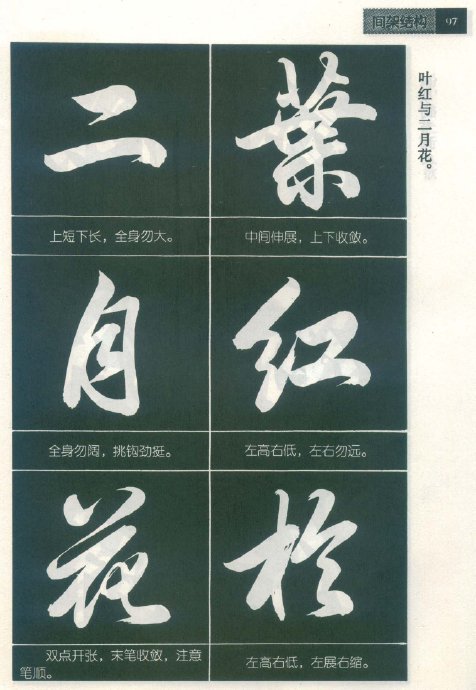 间架结构 97
叶红与二月花。
葉
中间伸展，上下收敛。
红
左高右低，左右勿远。
於
左高右低，左展右缩。
二
上短下长，全身勿大。
月
全身勿阔，挑钩劲挺。
花
双点开张，末笔收敛，注意
笔顺。